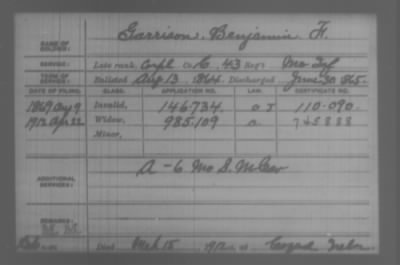 Garrison, Benjamin F.
NAME OF SOLDIER:
SERVICE: Late rank, Corpl Co. C, 43 Reg't Mo Inf
TERM OF SERVICE: Enlisted Aug 13, 1864 Discharged June 30 1865.
DATE OF FILING. CLASS. APPLICATION NO. LAW. CERTIFICATE NO.
1869 Aug 9 Invalid, 146.734 110.090.
1912 Apr 22 Widow, 985.109 745888
Minor,
ADDITIONAL SERVICES: A-6 Mo S. M. Cav
REMARKS:
Died Mch 15, 1912, at Cozad Nebr